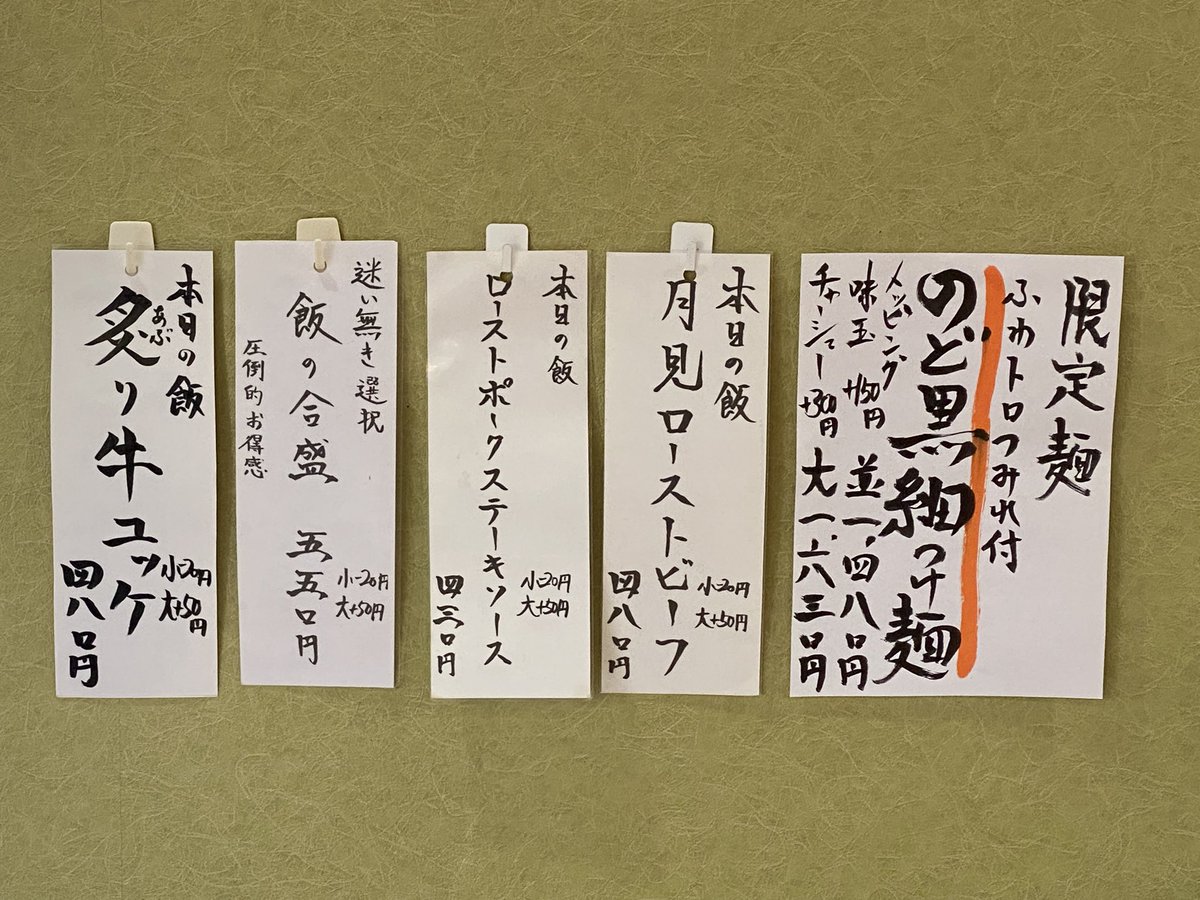 限定麺
ふわトロつみれ付
のど黒細つけ麺
並一、四八〇円
大一、六三〇円
メンピング
味玉 +150円
チャーシュー +300円
本日の飯
月見ローストビーフ
小-20円
大+50円
四八〇円
本日の飯
ローストポークステーキソース
小-20円
大+50円
四三〇円
迷い無き選択
飯の合盛 五五〇円
小-20円
大+50円
圧倒的お得感
本日の飯
炙り牛ユッケ
あぶ
小-20円
大+50円
四八〇円